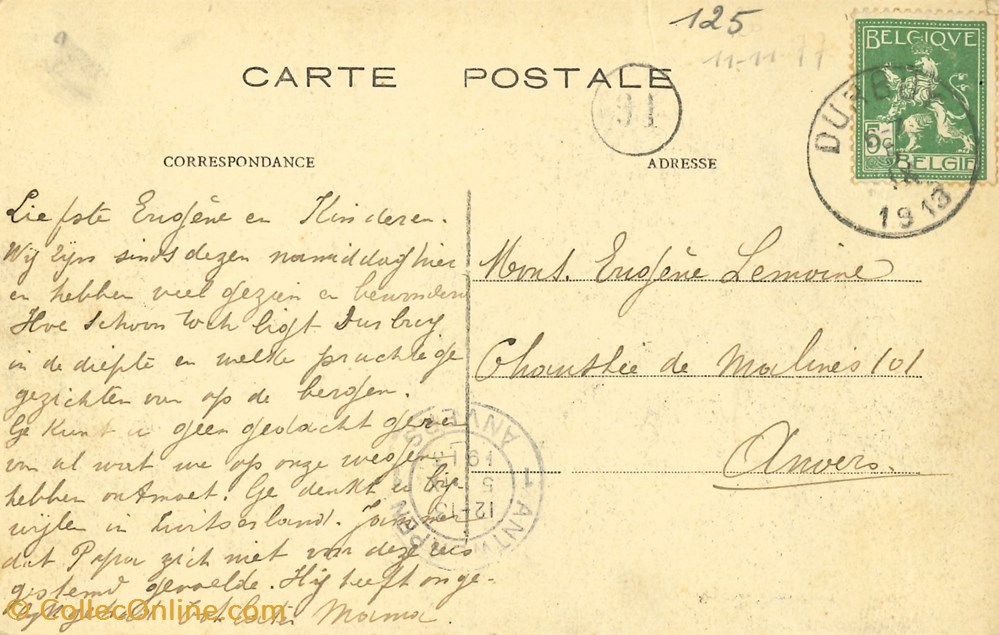 125
11-11-11
BELGIQUE
CARTE POSTALE
91
DURBUY
5c
BELGIË
1913
CORRESPONDANCE
ADRESSE
Liefste Eugène en Kinderen.
Wij zijn sinds dezen namiddag hier
en hebben veel gezien en bewonderd
Hoe schoon toch ligt Durbuy
in de diepte en welke prachtige
gezichten van op de bergen.
Ge kunt u geen gedacht geven
van al wat we op onze wegen
hebben ontmoet. Ge denkt u bij
wijlen in Zwitserland. Jammer
dat Papa zich niet van deze reis
gistemd gevoelde. Hij heeft onge-
Mama.
Mons. Eugène Lemoine
Chaussée de Malines 101
Anvers.
ANVERS
1913
5
12-13
1 ANTWERPEN 1
© CollecOnline.com